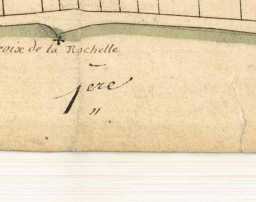 roix de la Rochelle
1ère
"